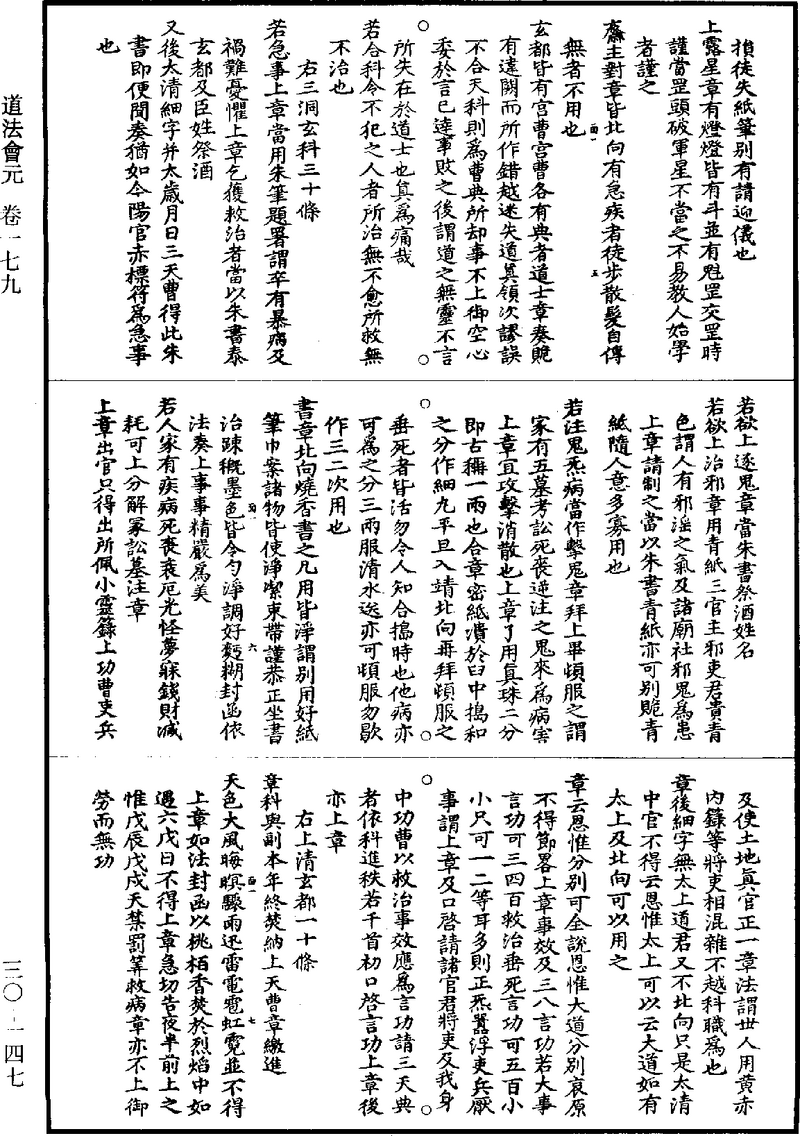 道法會元　卷一七九
三〇－一四七
損徒失紙筆別有請迎儀也
上露星章有燈燈皆有斗並有魁罡交罡時
謹當罡頭破軍星不當之不易教人始學
者謹之
齋主對章皆北向有急疾者徒步散髮自傳
無者不用也
玄都皆有宫曹宫曹各有典者道士章奏貌
有違闕而所作錯越迷失道真領次謬誤
不合天科則爲曹典所却事不上御空心
委於言已達事敗之後謂道之無靈不言
所失在於道士也真爲痛哉
若合科令不犯之人者所治無不愈所救無
不治也
右三洞玄科三十條
若急事上章當用朱筆題署謂卒有暴病及
禍難憂懼上章乞獲救治者當以朱書泰
玄都及臣姓祭酒
又後太清細字并太歲月日三天曹得此朱
書即便聞奏猶如今陽官赤標符爲急事
也
若欲上逐鬼章當朱書祭酒姓名
若欲上治邪章用青紙三官主邪吏君貴青
色謂人有邪淫之氣及諸廟社邪鬼爲患
上章請制之當以朱書青紙亦可別貺青
紙隨人意多寡用也
若注鬼炁病當作擊鬼章拜上畢頓服之謂
家有五墓考訟死喪逆注之鬼來爲病害
上章宜攻擊消散也上章了用真珠二分
即古稱一兩也合章密紙漬於臼中搗和
之分作細丸平旦入靖北向再拜頓服之
垂死者皆活勿令人知合搗時也他病亦
可爲之分三兩服清水送亦可頓服勿歇
作三二次用也
書章北向燒香書之凡用皆淨謂別用好紙
筆巾案諸物皆使淨潔束帶謹恭正坐書
治疎概墨色皆令勻淨調好麵糊封函依
法奏上事事精嚴爲美
若人家有疾病死喪衰厄光怪夢寐錢財減
耗可上分解冢訟墓注章
上章出官只得出所佩小靈籙上功曹吏兵
及使土地真官正一章法謂世人用黄赤
内籙等將吏相混雜不越科職爲也
章後細字無太上道君又不北向只是太清
中官不得云恩惟太上可以云大道如有
太上及北向可以用之
章云恩惟分別可全說恩惟大道分別哀原
不得節畧上章事效及三八言功若大事
言功可三四百救治垂死言功可五百小
小尺可一二等耳多則正炁囂浮吏兵厭
事謂上章及口啓請諸官君將吏及我身
中功曹以救治事效應爲言功請三天典
者依科進秩若干首初口啓言功上章後
亦上章
右上清玄都一十條
章科與副本年終焚納上天曹章繳進
天色大風晦暝驟雨迅雷電雹虹霓並不得
上章如法封函以桃栢香焚於烈焰中如
遇六戊日不得上章急切告夜半前上之
惟戊辰戊戌天禁罰筭救病章亦不上御
勞而無功